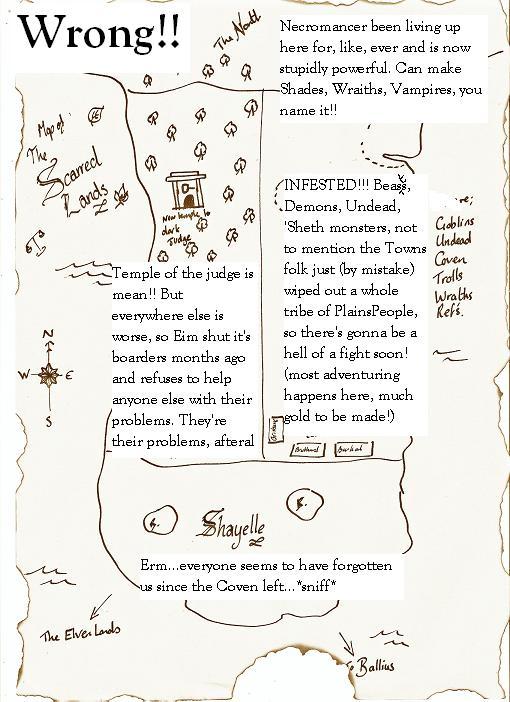 Wrong!!
The North
Necromancer been living up
here for, like, ever and is now
stupidly powerful. Can make
Shades, Wraiths, Vampires, you
name it!!
Map of
The
Scarred
Lands
New temple to
dark
Judge
INFESTED!!! Beass,
Demons, Undead,
'Sheth monsters, not
to mention the Towns
folk just (by mistake)
wiped out a whole
tribe of PlainsPeople,
so there's gonna be a
hell of a fight soon!
(most adventuring
happens here, much
gold to be made!)
Goblins
Undead
Coven
Trolls
Wraiths
Refs.
Temple of the judge is
mean!! But
everywhere else is
worse, so Eim shut it's
boarders months ago
and refuses to help
anyone else with their
problems. They're
their problems, afteral
N
W E
S
Shayelle
Erm...everyone seems to have forgotten
us since the Coven left...*sniff*
The Elven Lands
To Ballius